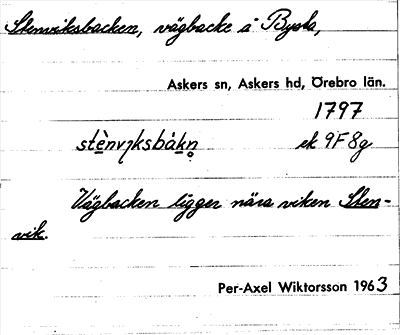 Stenviksbacken, vägbacke å Bysta,
Askers sn, Askers hd, Örebro län.
1797
stènvįksbàkn̥ ek 9F8g
Vägbacken ligger nära viken Sten-
vik.
Per-Axel Wiktorsson 1963